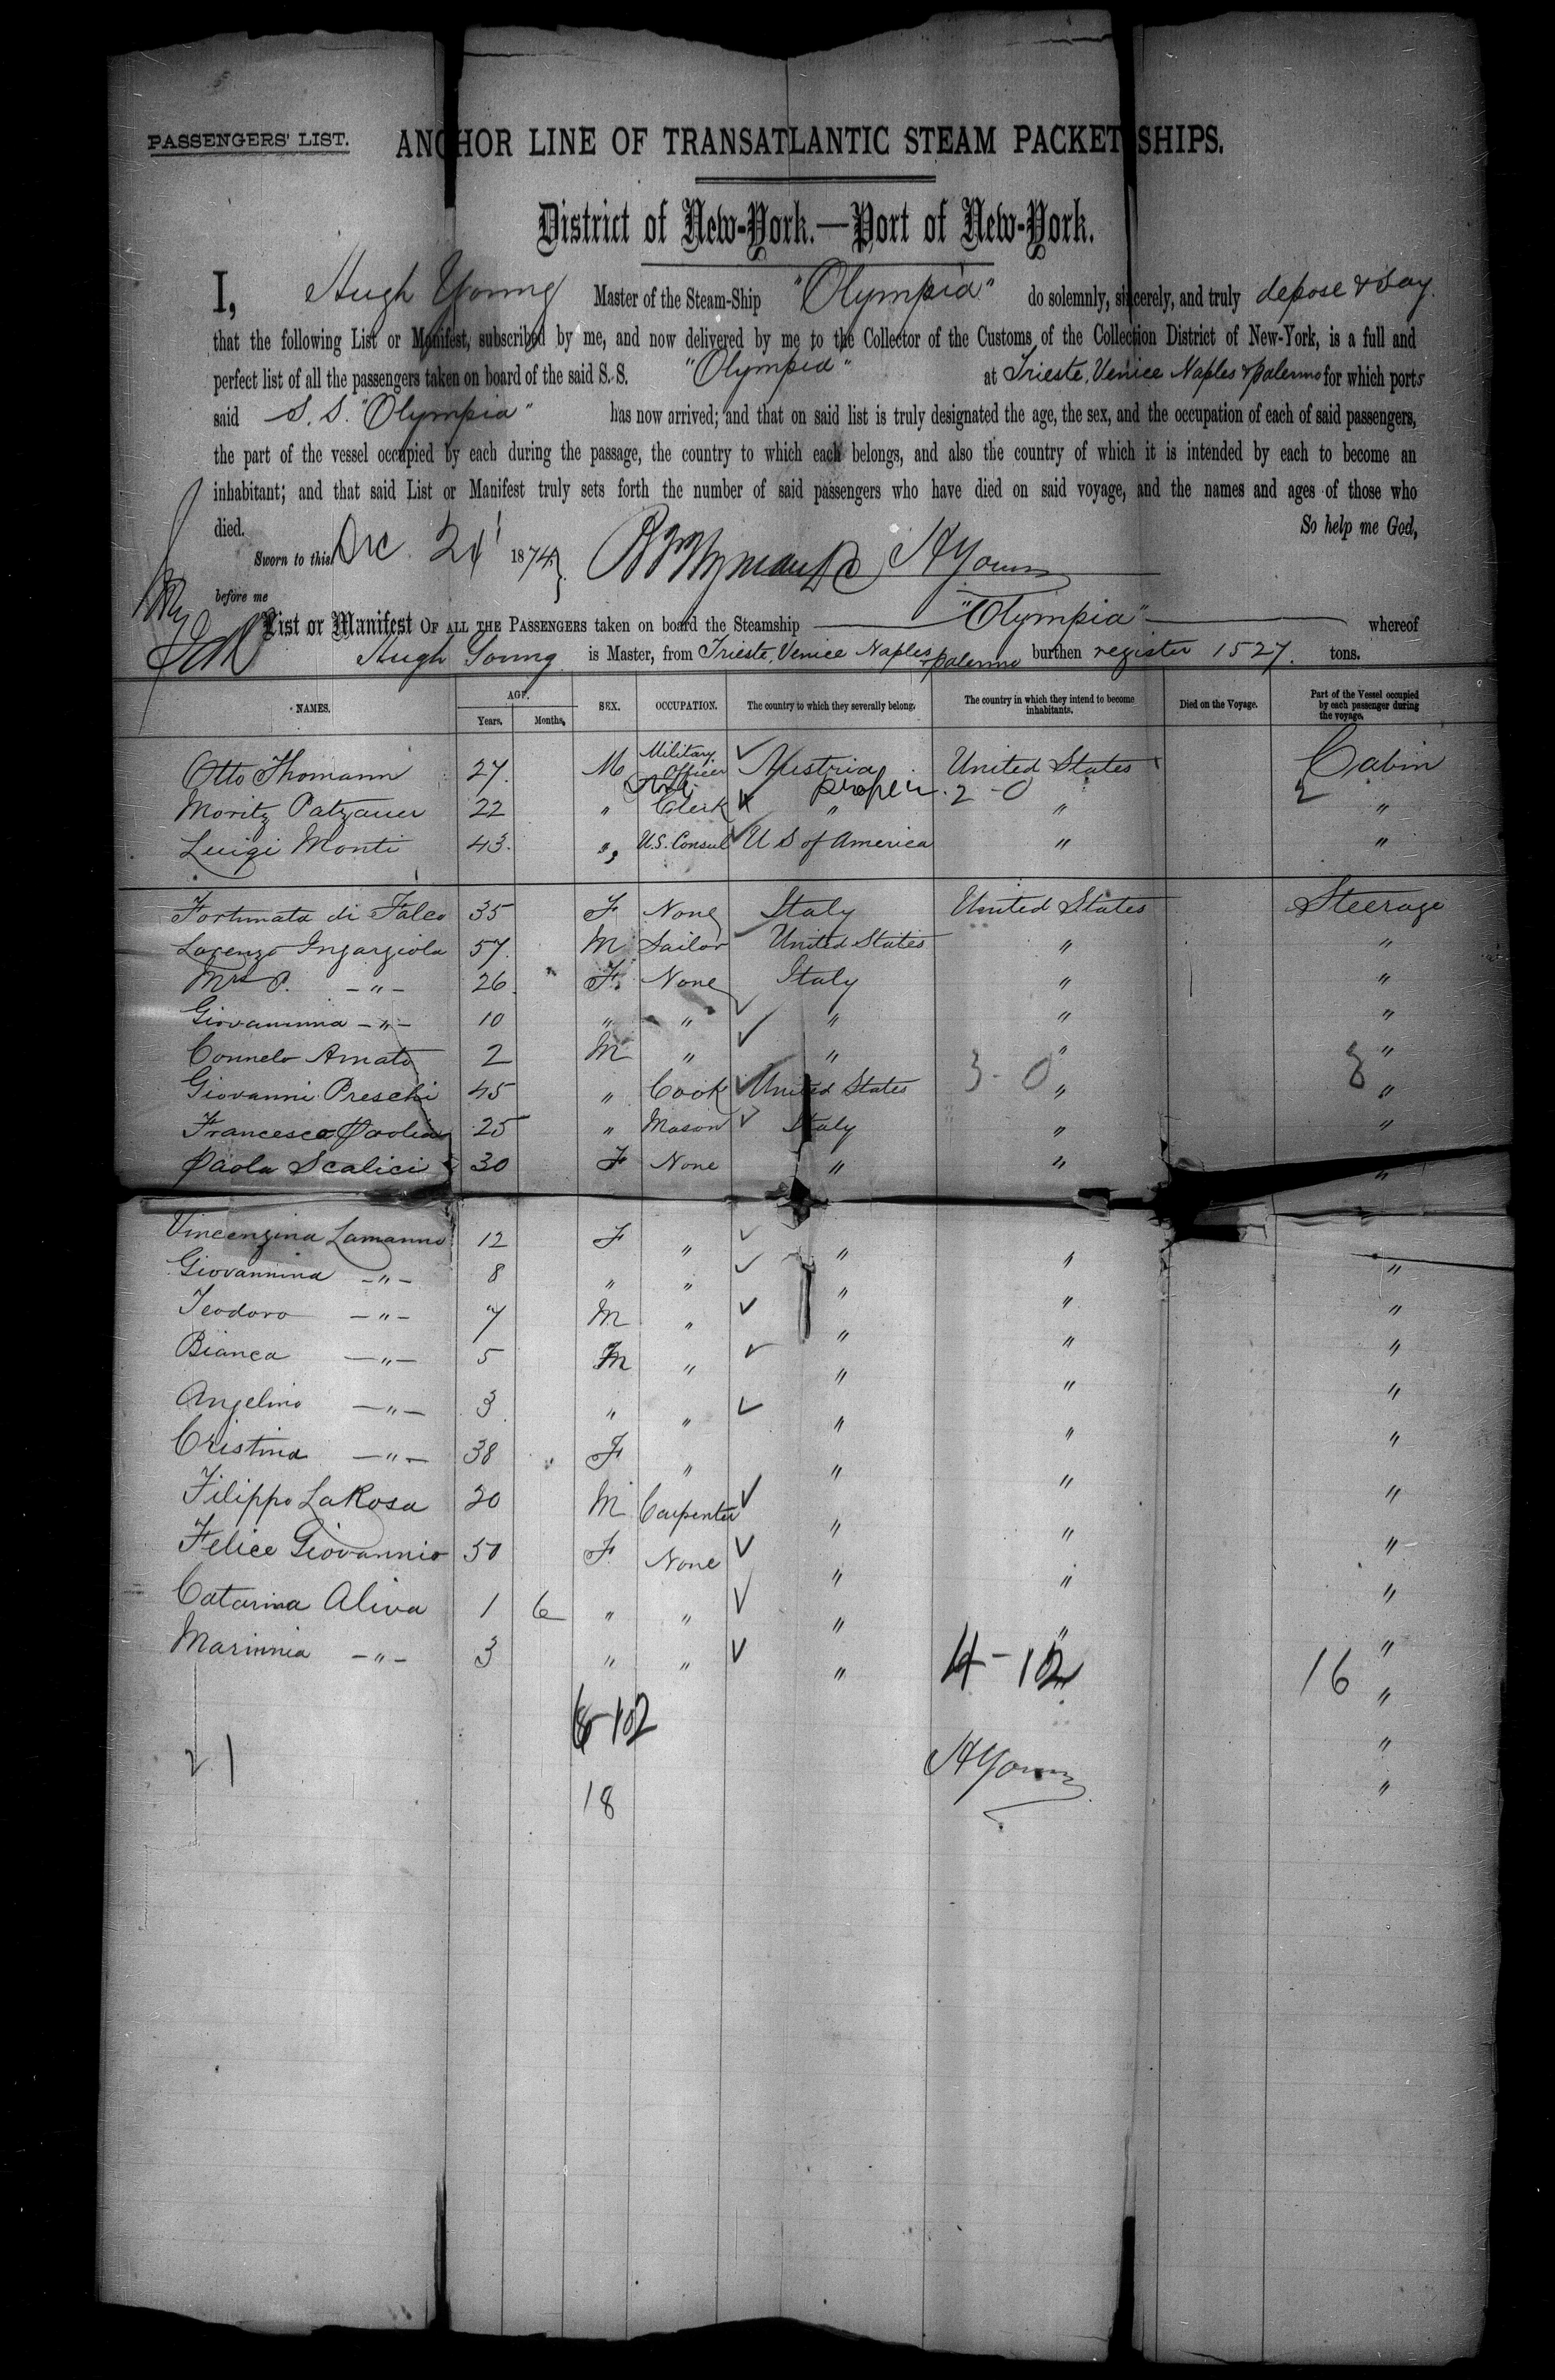 PASSENGERS' LIST.
ANCHOR LINE OF TRANSATLANTIC STEAM PACKET SHIPS.
District of New-York.—Port of New-York.
I, Hugh Young Master of the Steam-Ship "Olympia" do solemnly, sincerely, and truly depose & say.
that the following List or Manifest, subscribed by me, and now delivered by me to the Collector of the Customs of the Collection District of New-York, is a full and
perfect list of all the passengers taken on board of the said S. S. "Olympia" at Trieste, Venice Naples & Palermo for which ports
said S. S. "Olympia" has now arrived; and that on said list is truly designated the age, the sex, and the occupation of each of said passengers,
the part of the vessel occupied by each during the passage, the country to which each belongs, and also the country of which it is intended by each to become an
inhabitant; and that said List or Manifest truly sets forth the number of said passengers who have died on said voyage, and the names and ages of those who
died. So help me God,
Sworn to this Dec 24 1874 H Young
before me
List or Manifest OF ALL THE PASSENGERS taken on board the Steamship "Olympia" whereof
Hugh Young is Master, from Trieste, Venice Naples & Palermo burthen register 1527. tons.
NAMES. AGE. Years. Months. SEX. OCCUPATION. The country to which they severally belong. The country in which they intend to become inhabitants. Died on the Voyage. Part of the Vessel occupied by each passenger during the voyage.
Otto Thomann 27. M Military Officer Austria United States Cabin
proper. 2-0 2
Moritz Patzauer 22 " Clerk " " "
Luigi Monti 43. " U.S. Consul U S of America " "
Fortunata di Falco 35 F None Italy United States Steerage
Lorenzo Ingargiola 57. M Sailor United States " "
Mrs P. -"- 26. F. None Italy " "
Giovannina -"- 10 " " " " "
Connelo Amato 2 M " " " "
3-0 8
Giovanni Preschi 45 " Cook United States " "
Francesco Paolia 25 " Mason Italy " "
Paola Scalici 30 F None " " "
Vincenzina Lamanno 12 F " " " "
Giovannina -"- 8 " " " " "
Teodoro -"- 7 M " " " "
Bianca -"- 5 M " " " "
Angelino -"- 3. " " " " "
Cristina -"- 38 F " " " "
Filippo LaRosa 20 M Carpenter " " "
Felice Giovannio 50 F None " " "
Catarina Aliva 1 6 " " " " "
Marinnia -"- 3 " " " 4-12 16 "
6-12 "
21 H Young "
18